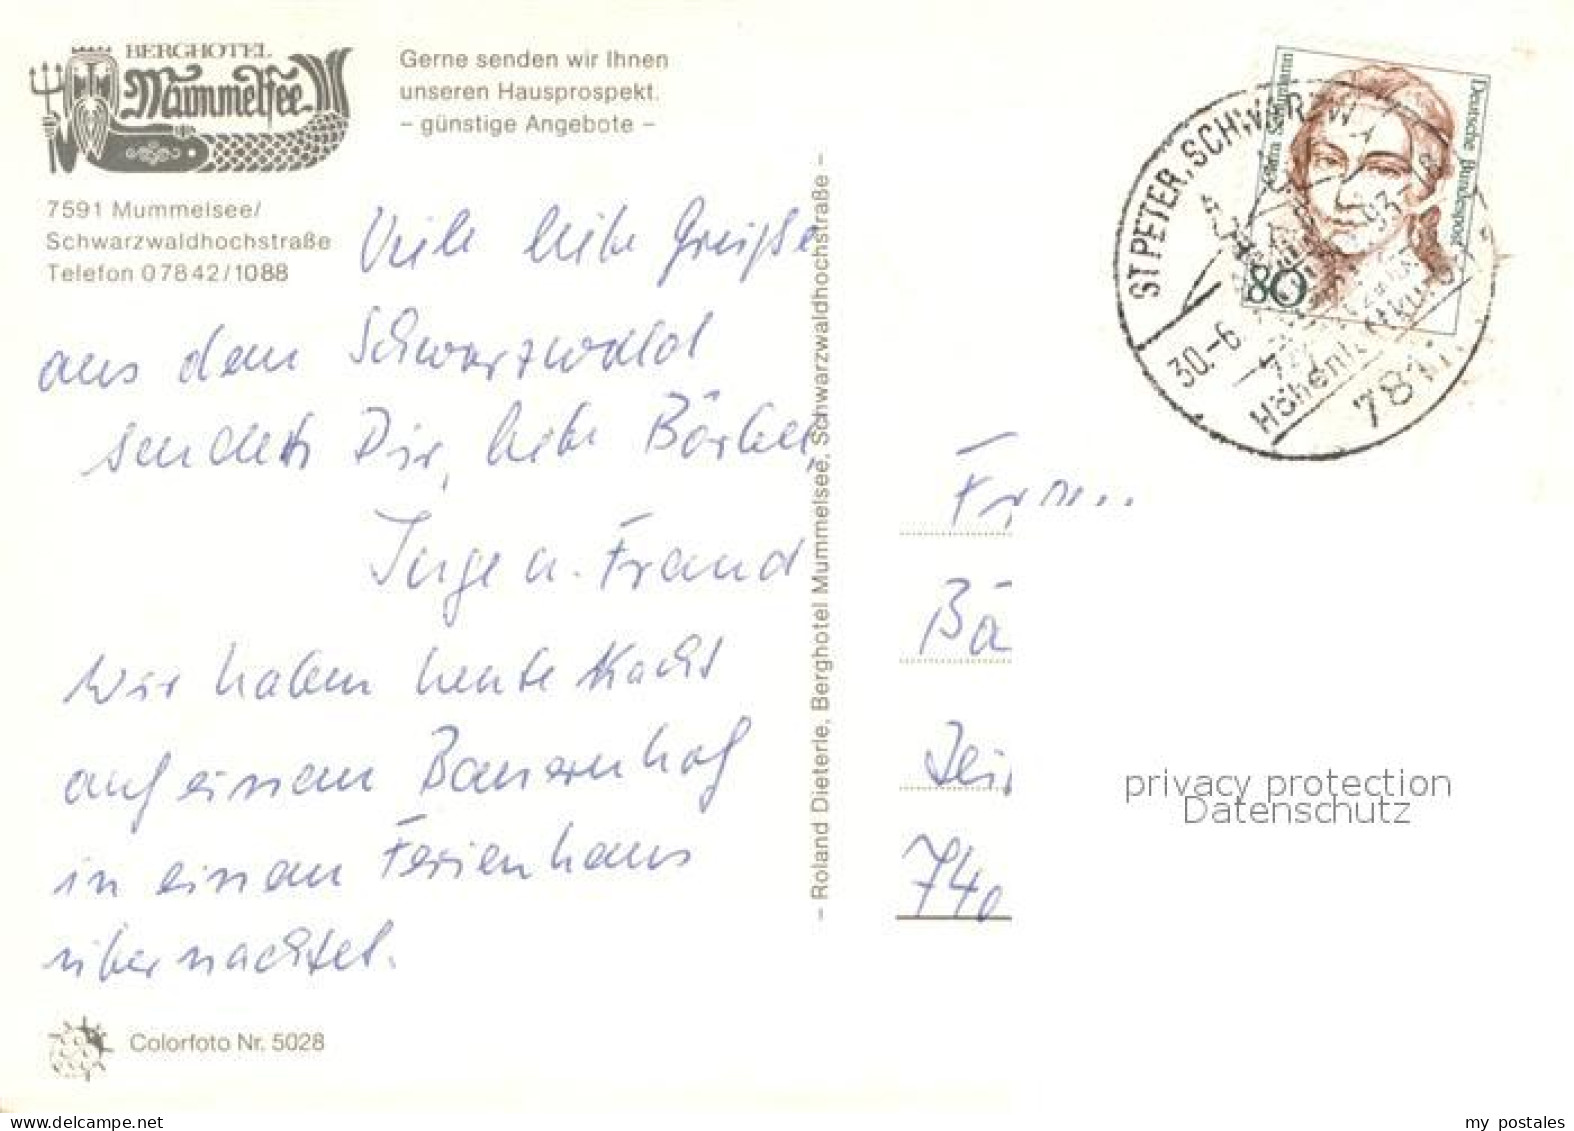 BERGHOTEL
Mummelsee
Gerne senden wir Ihnen
unseren Hausprospekt.
– günstige Angebote –
7591 Mummelsee/
Schwarzwaldhochstraße
Telefon 07842/1088
Viele liebe Grüße
aus dem Schwarzwald
senden Dir, liebe Bärbel,
Inge u.
Wir haben heute Nacht
auf einem Bauernhof
in einem Ferienhaus
übernachtet.
Colorfoto Nr. 5028
– Roland Dieterle, Berghotel Mummelsee, Schwarzwaldhochstraße –
Deutsche Bundespost
Clara Schumann
80
ST PETER, SCHWARZW
30.-6
93-18
781
Frau
Bä
740
privacy protection
Datenschutz
my postales